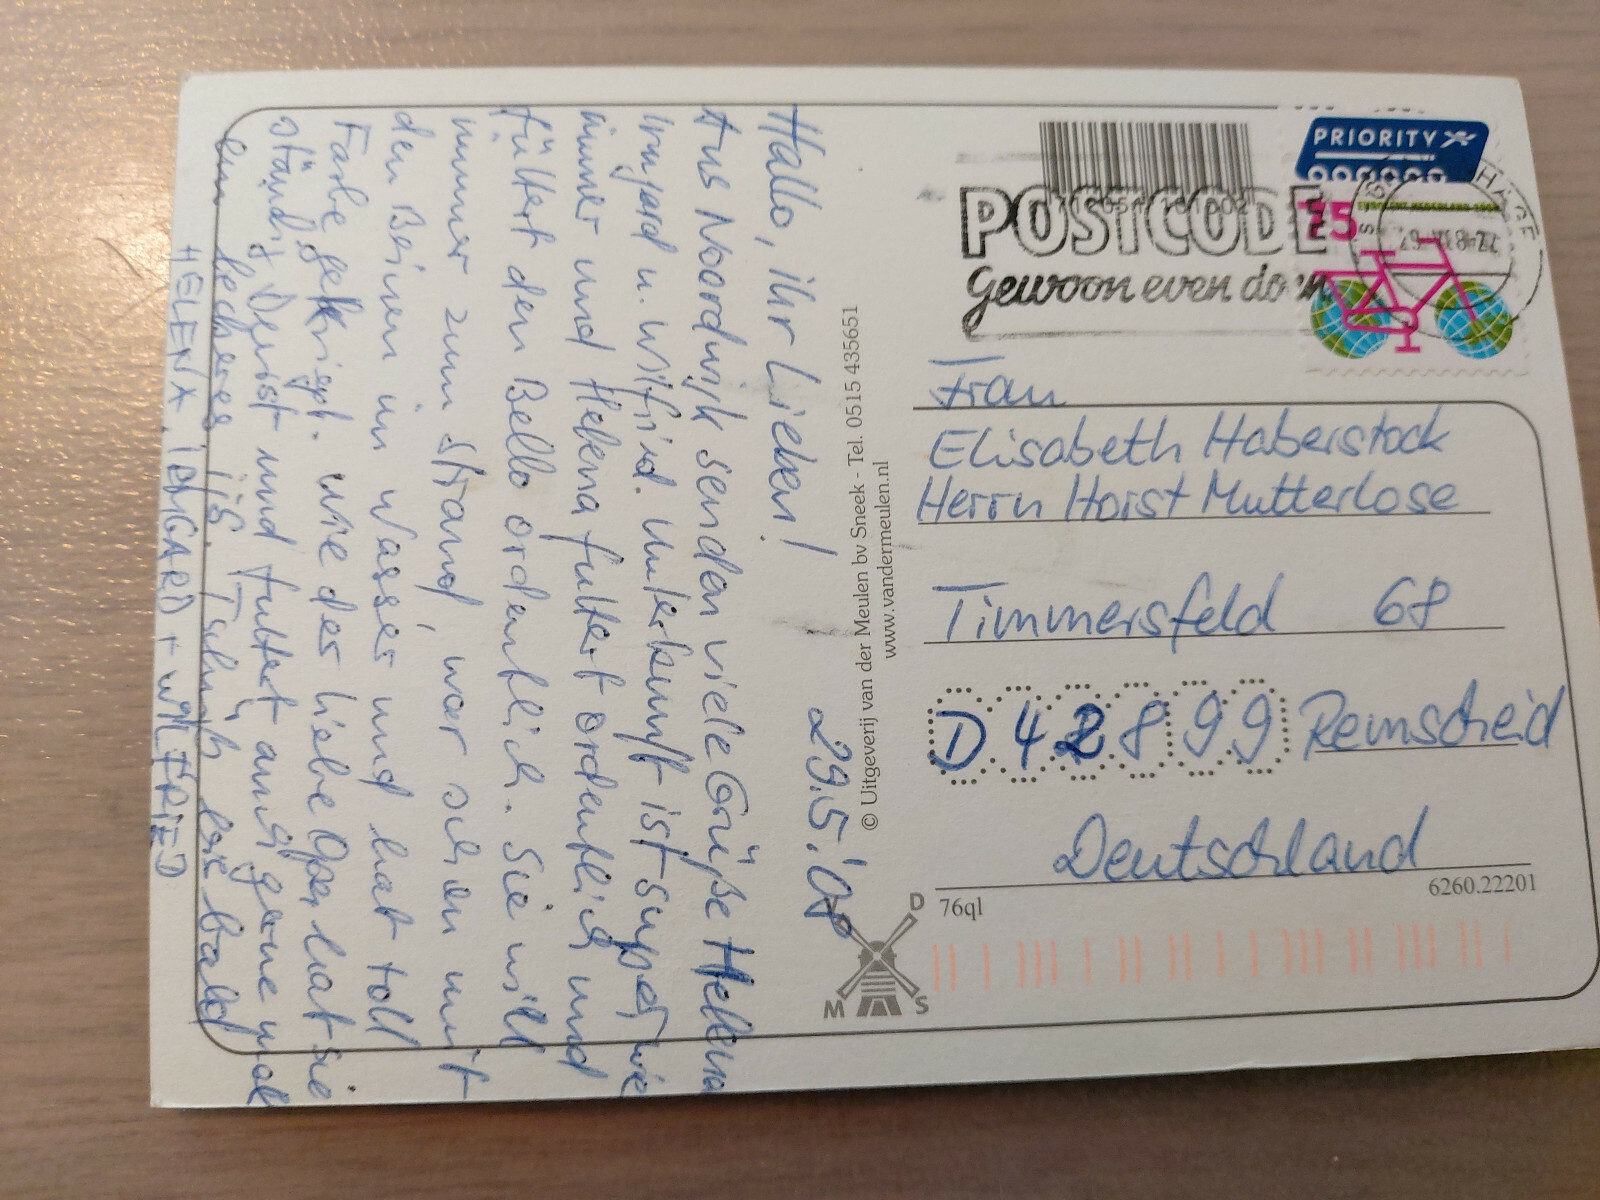 Hallo, ihr Lieben!
29.5.'08
Aus Noordwijk senden viele Grüße Helena
Irmgard u. Wilfried. Unterkunft ist super wie
immer und Helena futtert ordentlich und
füttert den Bello ordentlich. Sie will
immer zum Strand, war schon mit
den Beinen im Wasser und hat toll
Farbe gekriegt. Wie der liebe Opa hat sie
ständig Durst und futtert auch gerne mal
ein leckeres Eis. Tschüß bis bald
HELENA, IRMGARD + WILFRIED
© Uitgeverij van der Meulen bv Sneek - Tel. 0515 435651
www.vandermeulen.nl
PRIORITY
POSTCODE
Gewoon even doen
75
Frau
Elisabeth Haberstock
Herrn Horst Mutterlose
Timmersfeld 68
D 42899 Remscheid
Deutschland
76ql
6260.22201
D
M S